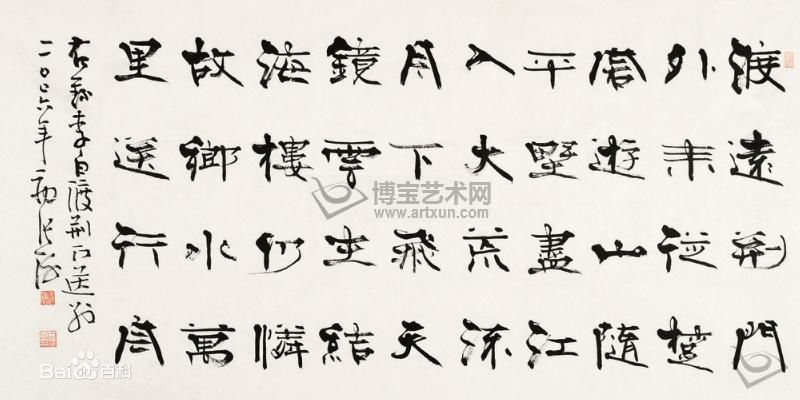 渡遠荆門
外来從楚
國遊山隨
平野盡江
入大荒流
月下飛天
鏡雲生結
海樓仍憐
故鄉水萬
里送行舟
右錄李白渡荆门送别
二〇〇六年 张海
博宝艺术网
www.artxun.com
Baidu百科